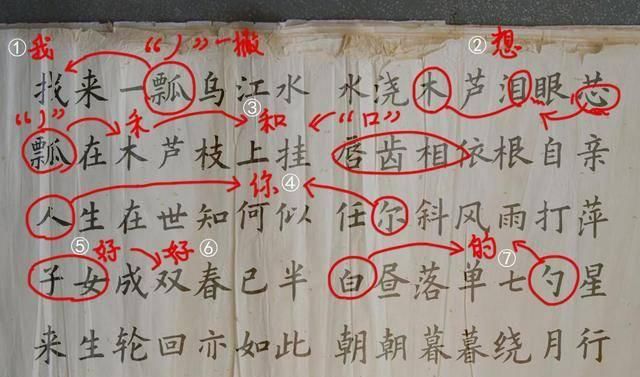 ①我 “丿”一撇 ②想
找来一瓢乌江水 水浇木芦泪眼芯
“丿” 禾 ③ 和 “口”
瓢在木芦枝上挂 唇齿相依根自亲
你④
人生在世知何似 任尔斜风雨打萍
⑤好 好⑥ 的⑦
子女成双春已半 白昼落单七勺星
来生轮回亦如此 朝朝暮暮绕月行